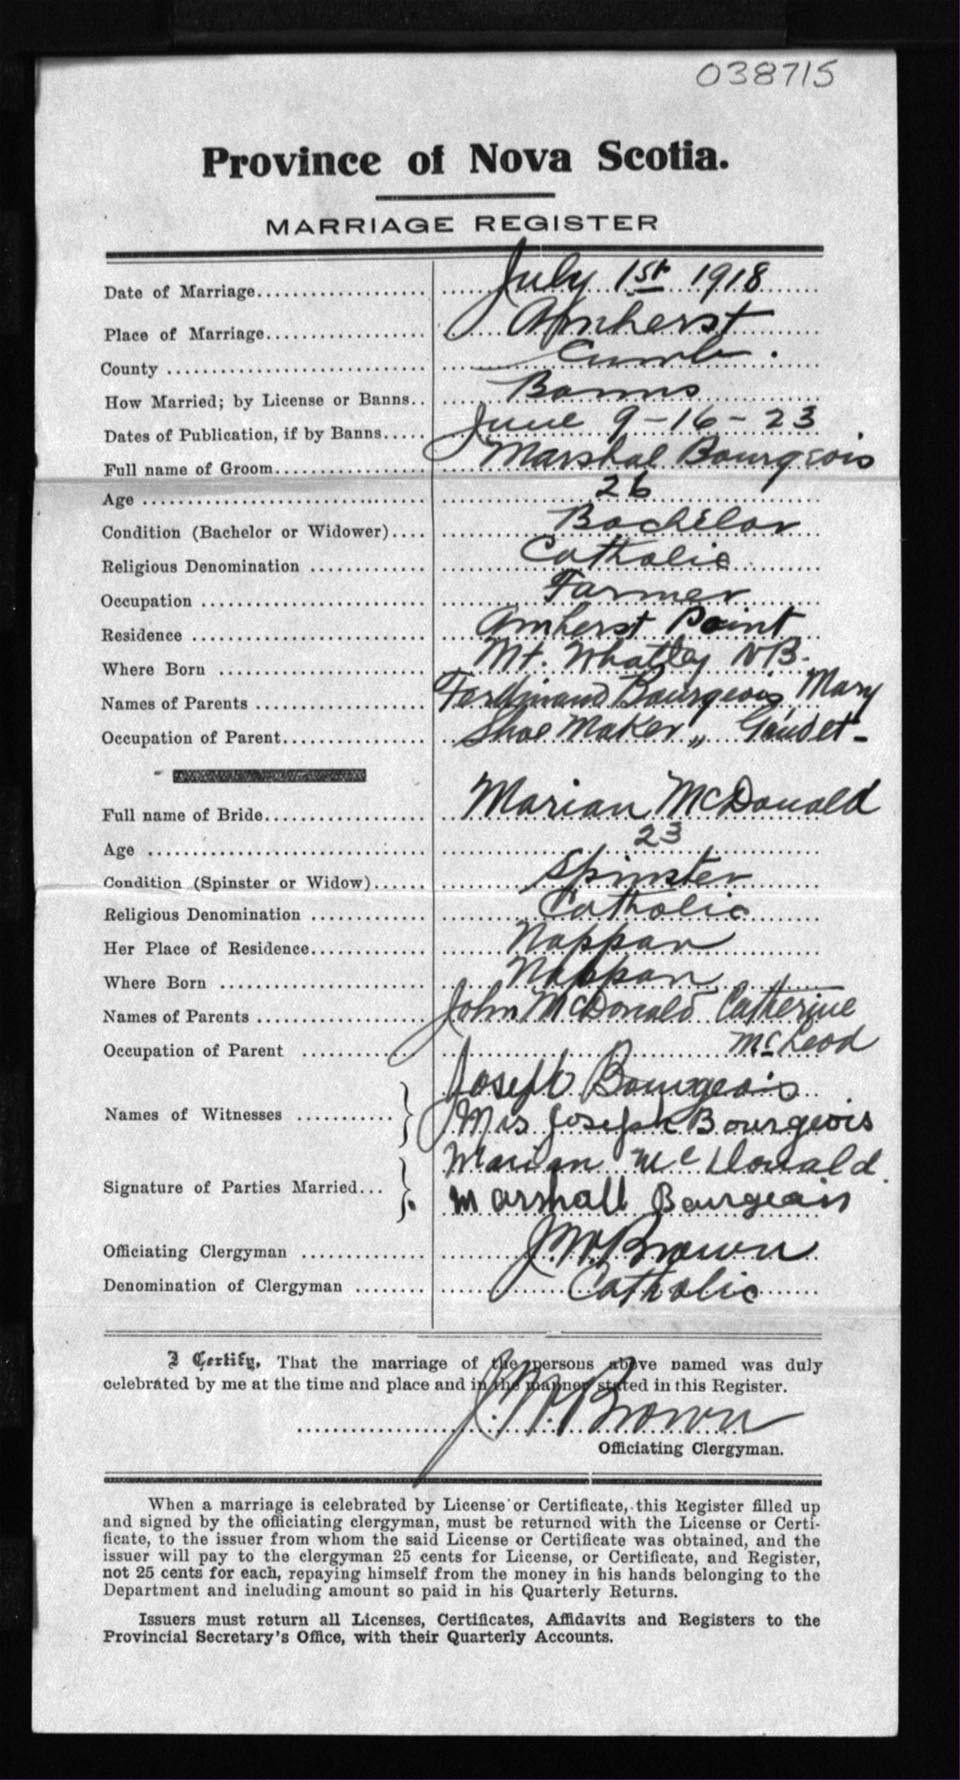 038715
Province of Nova Scotia.
MARRIAGE REGISTER
Date of Marriage.................... July 1st 1918
Place of Marriage................... Amherst
County .............................. Cumb.
How Married; by License or Banns.. Banns
Dates of Publication, if by Banns..... June 9-16-23
Full name of Groom.................. Marshal Bourgeois
Age .................................. 26
Condition (Bachelor or Widower).... Bachelor
Religious Denomination .............. Catholic
Occupation ........................... Farmer
Residence ............................ Amherst Point
Where Born .......................... Mt. Whatley NB.
Names of Parents ..................... Ferdinand Bourgeois, Mary
Occupation of Parent................. Shoe Maker „ Gaudet-
Full name of Bride................... Marian McDonald
Age .................................. 23
Condition (Spinster or Widow)...... Spinster
Religious Denomination .............. Catholic
Her Place of Residence.............. Nappan
Where Born .......................... Nappan
Names of Parents ..................... John McDonald Catherine
Occupation of Parent ................ McLeod
Joseph Bourgeois
Names of Witnesses ............ Mrs Joseph Bourgeois
Marian McDonald.
Signature of Parties Married... Marshall Bourgeois
Officiating Clergyman ............... J.W. Brown
Denomination of Clergyman ......... Catholic
I Certify, That the marriage of the persons above named was duly
celebrated by me at the time and place and in the manner stated in this Register.
J.W. Brown
Officiating Clergyman.
When a marriage is celebrated by License or Certificate, this Register filled up
and signed by the officiating clergyman, must be returned with the License or Certi-
ficate, to the issuer from whom the said License or Certificate was obtained, and the
issuer will pay to the clergyman 25 cents for License, or Certificate, and Register,
not 25 cents for each, repaying himself from the money in his hands belonging to the
Department and including amount so paid in his Quarterly Returns.
Issuers must return all Licenses, Certificates, Affidavits and Registers to the
Provincial Secretary's Office, with their Quarterly Accounts.